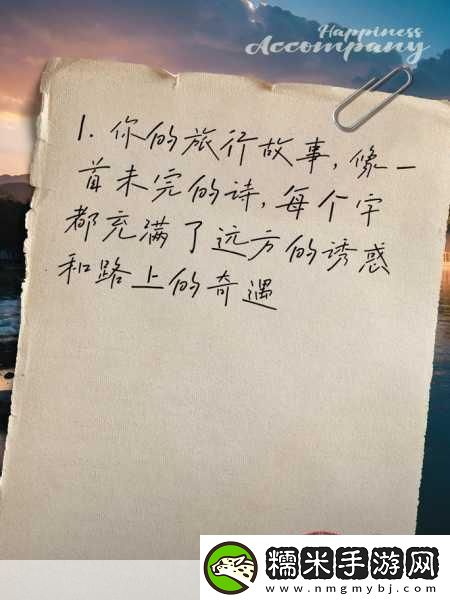 Happiness
Accompany
1. 你的旅行故事，像一
首未完的诗，每个字
都充满了远方的诱惑
和路上的奇遇
糯米手游网
www.nmgmybj.com